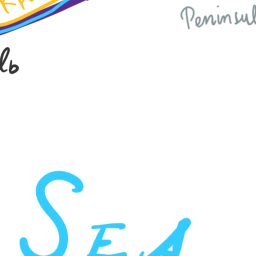 Peninsul
ль
SEA